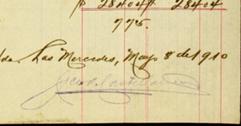 ₱ 28404 ₱ 28404
775.
da. Las Mercedes, Mayo 8 de 1910